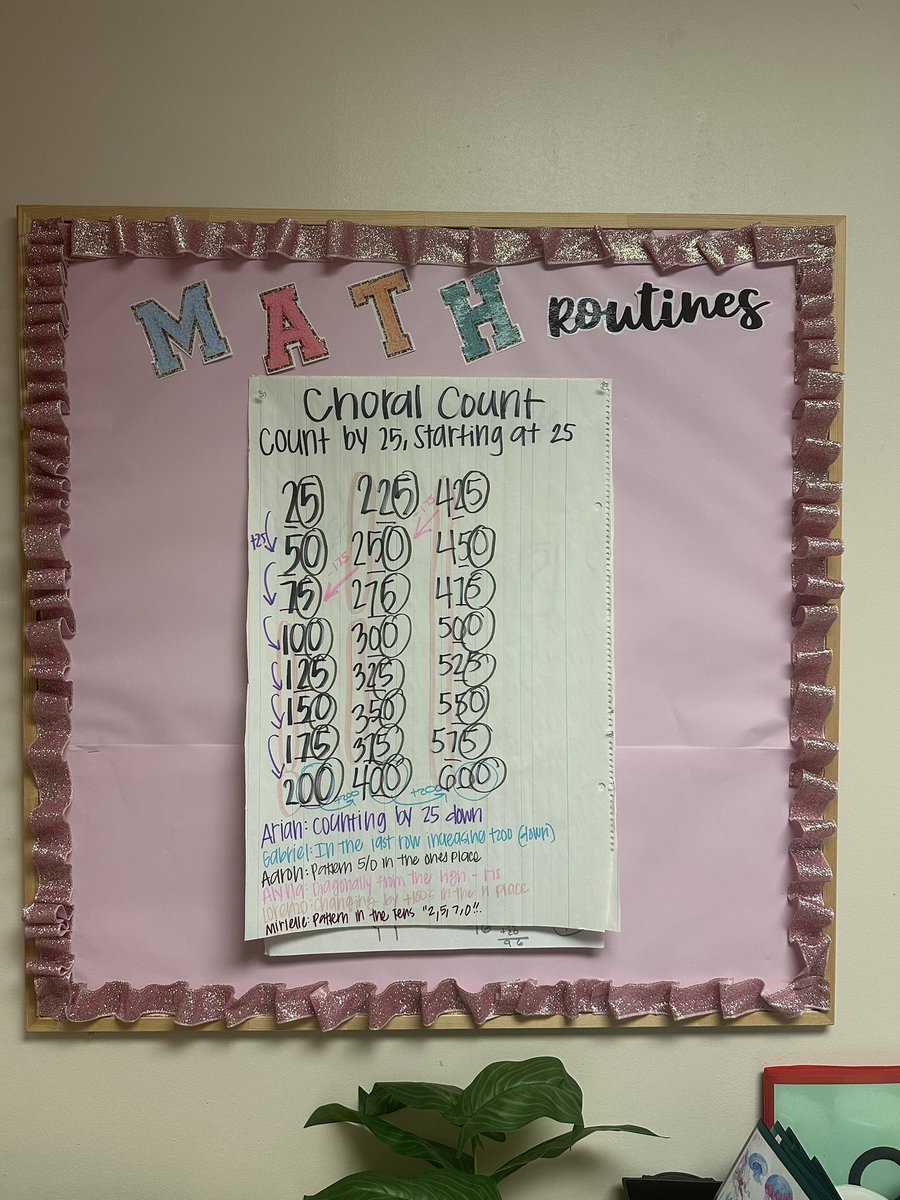 MATH routines
Choral Count
Count by 25, starting at 25
25 225 425
+25 50 250 450
75 275 475
100 300 500
125 325 525
150 350 550
175 375 575
200 400 600
+200 +200
-175 -175
Arian: Counting by 25 down
Gabriel: In the last row increasing +200 (down)
Aaron: Pattern 5/0 in the ones place
Diagonally from the right - 175
Lorenzo: Changing by +100s in the H Place
Mirielle: Pattern in the tens "2,5,7,0"!!
96